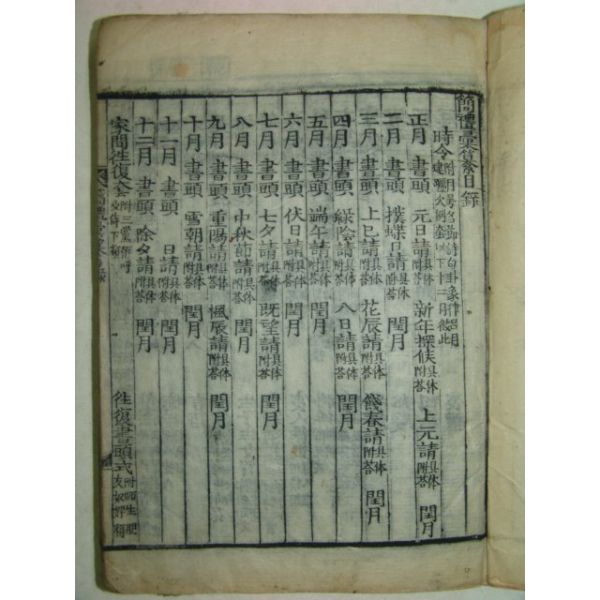 簡禮彙纂目錄
時令
正月 書頭 元日請具体附答 新年探候具体附答 上元請具体附答 閏月
二月 書頭 撲蝶日請具体附答 閏月
三月 書頭 上巳請具体附答 花辰請具体附答 餞春請具体附答 閏月
四月 書頭 綠陰請具体附答 八日請具体附答 閏月
五月 書頭 端午請具体附答 閏月
六月 書頭 伏日請具体附答 閏月
七月 書頭 七夕請具体附答 既望請具体附答 閏月
八月 書頭 中秋節請具体附答 閏月
九月 書頭 重陽請具体附答 楓辰請具体附答 閏月
十月 書頭 雪朝請具体附答 閏月
十一月 書頭 日請具体附答 閏月
十二月 書頭 除夕請具体附答 閏月
家間往復 往復書頭式